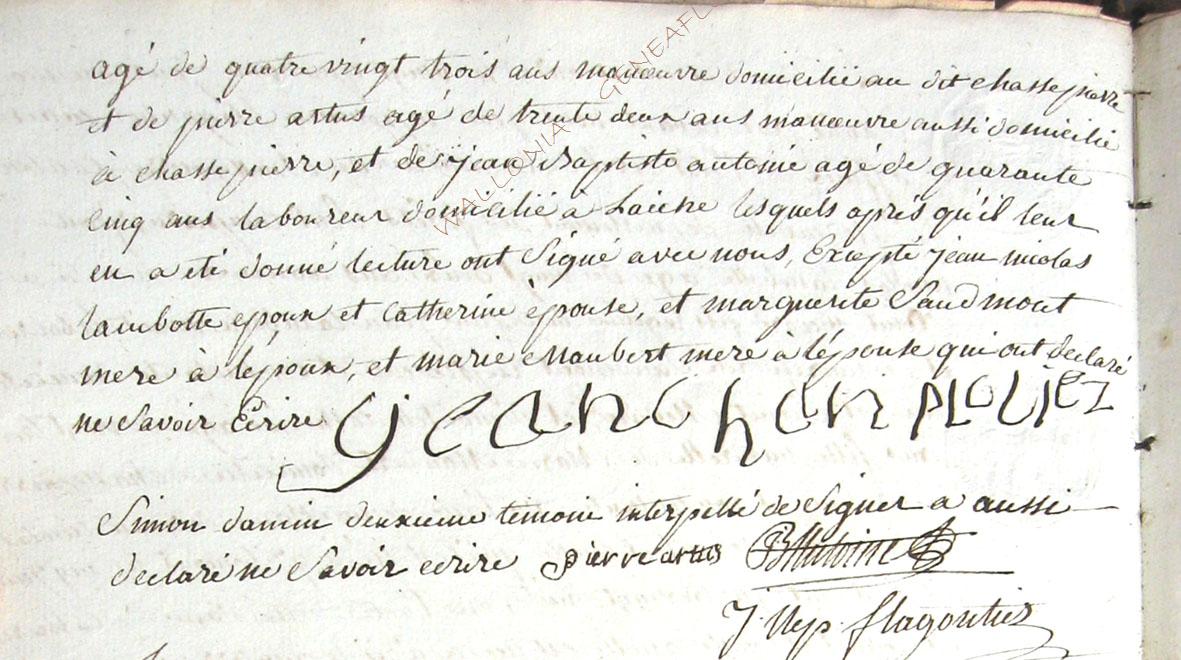 agé de quatre vingt trois ans manœuvre domicilié au dit chassepierre
et de pierre artus agé de trente deux ans manœuvre aussi domicilié
à chassepierre, et de jean Baptiste antoine agé de quarante
cinq ans laboureur domicilié à Laiche lesquels après qu'il leur
en a eté donné lecture ont Signé avec nous, Excepté jean nicolas
lambotte epoux et Catherine épouse, et marguerite Saudmont
mere à lépoux, et marie Maubert mere à lépouse qui ont declaré
ne Savoir Ecrire jean henri
Simon damin deuxieme temoin interpellé de Signer a aussi
declaré ne Savoir ecrire pierre artus
WALLONIA GENEAFL